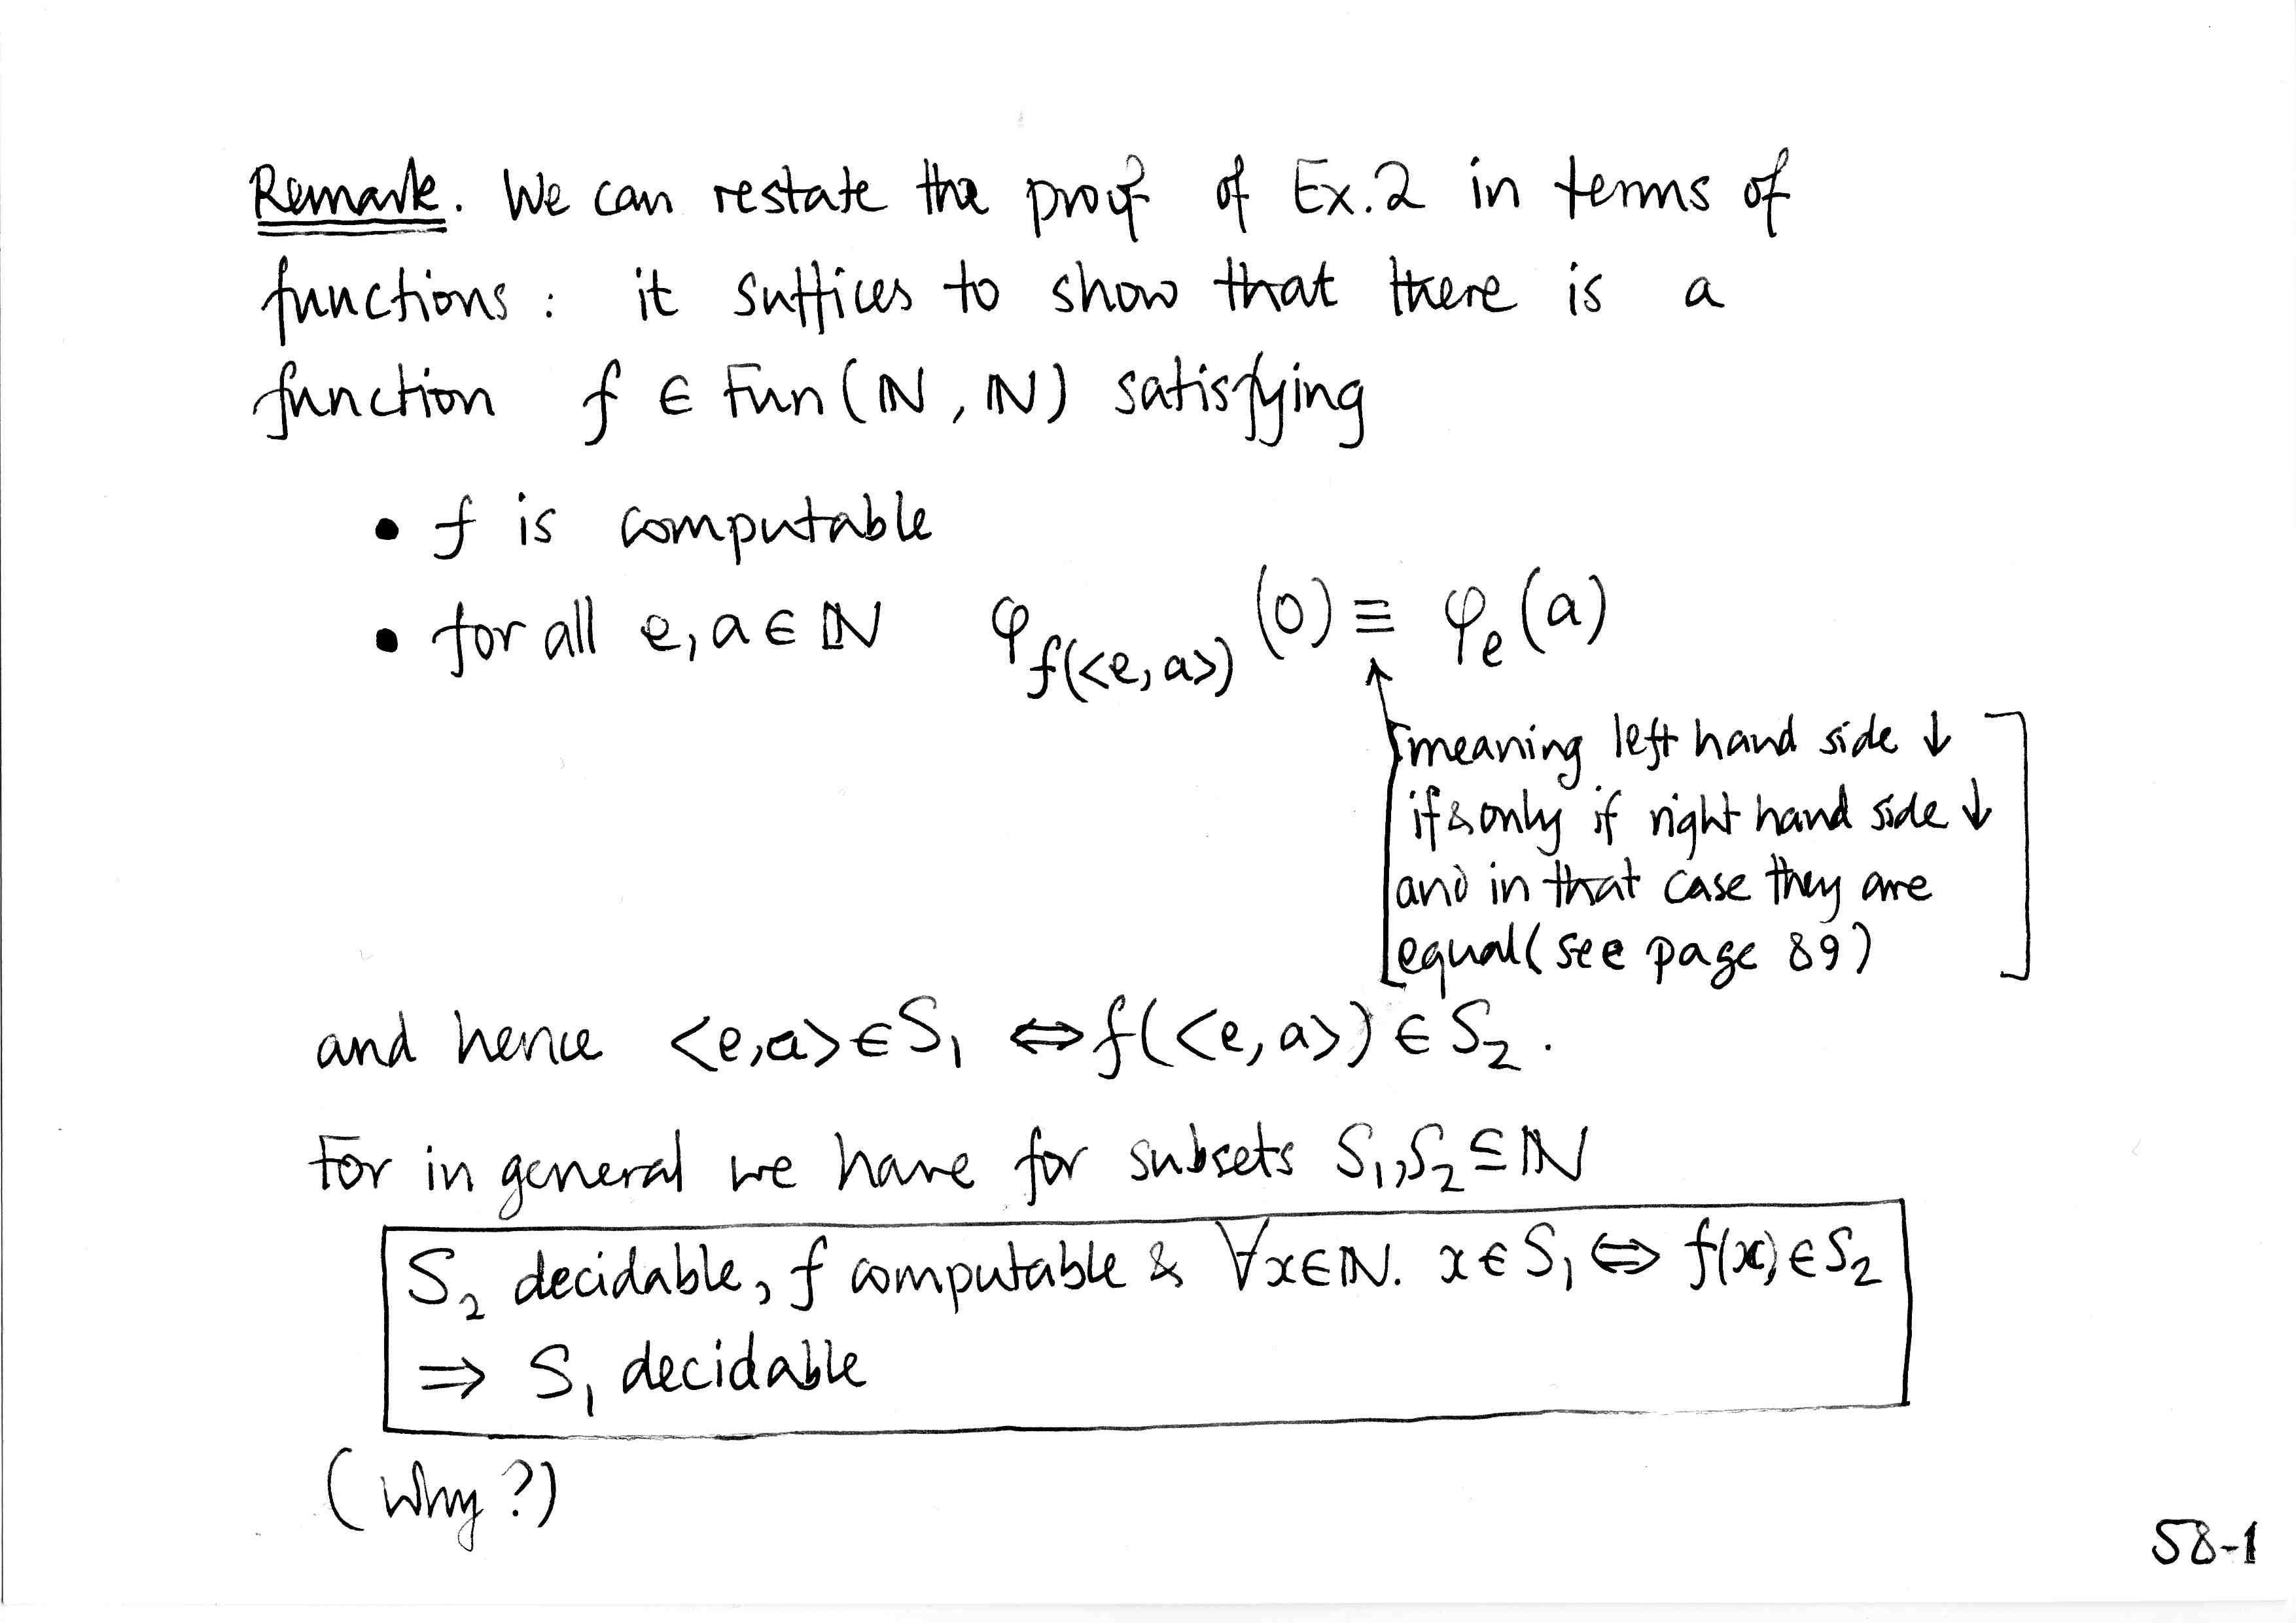 Remark. We can restate the proof of Ex.2 in terms of
functions : it suffices to show that there is a
function f ∈ Fun(ℕ, ℕ) satisfying
• f is computable
• for all e, a ∈ ℕ φ_f(<e,a>) (0) ≡ φ_e(a)
[meaning left hand side ↓
if & only if right hand side ↓
and in that case they are
equal (see page 89)]
and hence <e,a> ∈ S₁ ⇔ f(<e,a>) ∈ S₂.
For in general we have for subsets S₁,S₂ ⊆ ℕ
S₂ decidable, f computable & ∀x∈ℕ. x ∈ S₁ ⇔ f(x) ∈ S₂
⇒ S₁ decidable
(Why?)
58-1